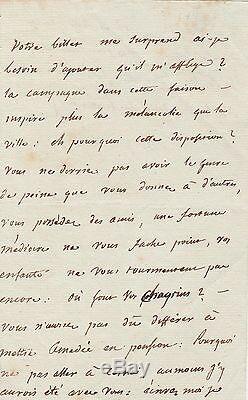 Votre billet me surprend ai-je
besoin d'ajouter qu'il m'afflige?
la campagne dans cette saison —
inspire plus la mélancolie que la
ville: eh pourquoi cette disposition?
vous ne devriez pas avoir le genre
de peine que vous donne à d'autres
vous possedez des amis, une fortune
médiocre ne vous fache point, vos
enfants ne vous tourmentent pas
encore: où sont vos chagrins? —
vous n'auriez pas dû différer à
mettre Amedée en pension: Pourquoi
ne pas aller à au moins j'y
aurois été avec vous: écrivez moi je